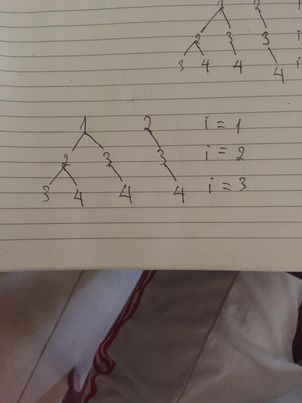 2 3
3 4 4 4
1 2 i = 1
2 3 3 i = 2
3 4 4 4 i = 3